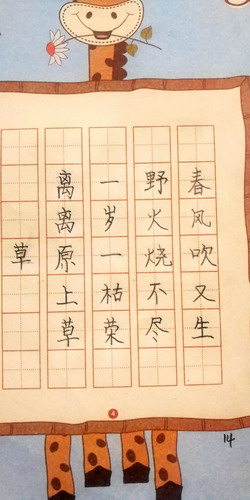 草
离离原上草
一岁一枯荣
野火烧不尽
春风吹又生
4
14